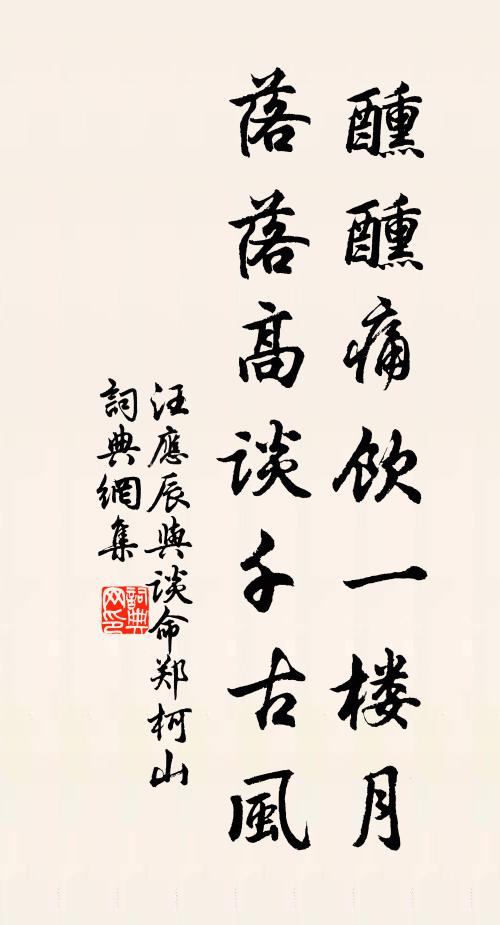 醺醺痛飲一楼月
落落高談千古風
汪應辰與談命郑柯山
詞典網集
詞典网印